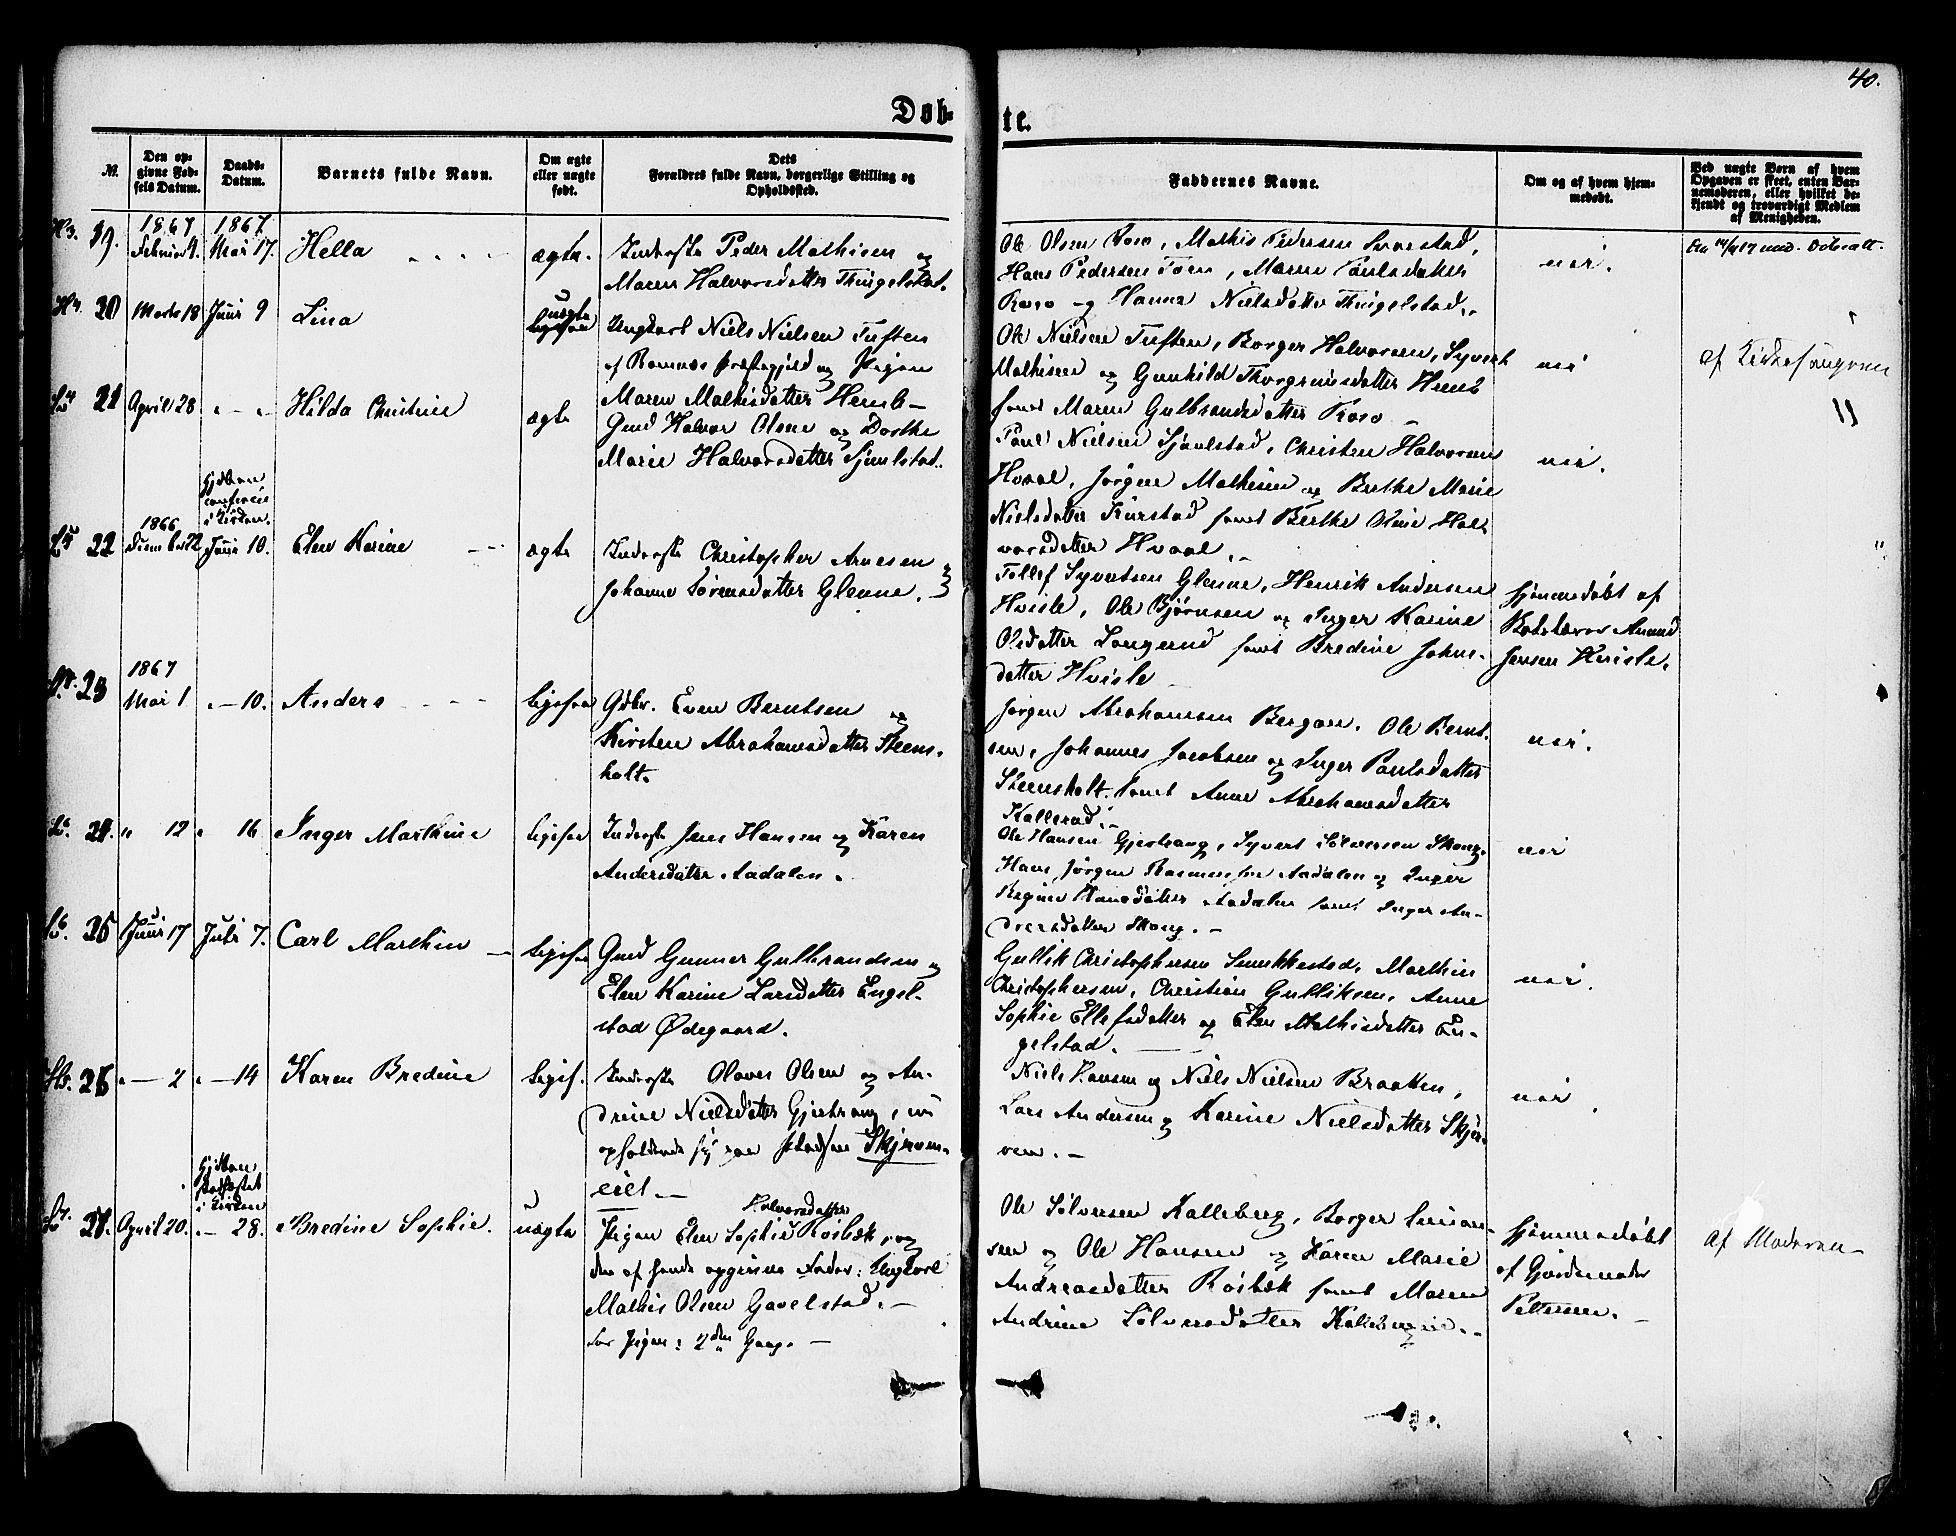 40.
Døb-
te.
№.
Den op-
givne Fød-
sels Datum.
Daabs-
Datum.
Barnets fulde Navn.
Om ægte
eller uægte
født.
Dets
Forældres fulde Navn, borgerlige Stilling og
Opholdssted.
Faddernes Navne.
Om og af hvem hjem-
medøbt.
Ved uægte Børn af hvem
Opgaven er skeet, enten Bar-
nemoderen, eller hvilket be-
kjendt og troværdigt Medlem
af Menigheden.
19.
1867
1867
Mai 17.
Hella
ægte.
Inderste Peder Mathisen og
Maren Halvorsdatter Thingelstad.
Ole Olsen Roso, Mathis Pedersen
Hans Pedersen Toen, Maren Paulsdatter
Roso og Hanna Nielsdatter Thingelstad.
nei.
20
Marts 18
Juni 9
Lina
uægte
Ungkarl Niels Nielsen Tuften
af Ramnæs Præstegjeld og Pigen
Maren Mathisdatter Hemb-
Ole Nielsen Tuften, Borger Halvorsen, Syvert
Mathisen og Gunhild Thorgrimsdatter Hemb
samt Maren Gulbrandsdatter Roso -
nei
af Kirkesangeren
21
April 28
" - "
Hilda Christine
ægte
Gmd Halvor Olsen og Dorthe
Marie Halvorsdatter Sjuelstad.
Paul Nielsen Sjuelstad, Christen Halvorsen
Hvaal, Jørgen Mathisen og Berthe Marie
Nielsdatter samt Berthe Oline Hal-
vorsdatter Hvaal. -
nei.
22
1866
December 22
i Kirken.
Juni 10.
Elen Karine
ægte
Inderste Christopher Arnesen og
Johanne Sørensdatter Glenne. -
Tollef Syvertsen Glenne, Henrik Andersen
Hvisle, Ole Bjørnsen og Inger Karine
Olsdatter Langerud samt Bredine Johns-
datter Hvisle -
hjemmedøbt af
Amund
Jensen Hvisle.
23
1867
Mai 1
" - 10.
Anders
ligesaa
Gdbr. Even Berntsen og
Kirsten Abrahamsdatter Steens-
holt.
Jørgen Abrahamsen Bergan, Ole Bernt-
sen, Johannes Jacobsen og Inger Paulsdatter
Steensholt samt Anne Abrahamsdatter
Kallerød. -
nei.
24.
" 12
" 16
Inger Marthine
ligesaa
Inderste Jens Hansen og Karen
Andersdatter Aadalen.
Ole Hansen Gjerstang, Syvert Sølversen Skoug,
Hans Jørgen Rasmussen Aadalen og Inger
Regine Hansdatter Aadalen samt Inger An-
dersdatter Skoug. -
nei
25
Juni 17
Juli 7.
Carl Marthin -
ligesaa
Gmd Gunner Gulbrandsen og
Elen Karine Larsdatter Engel-
stad Ødegaard.
Gullik Christophersen Smukkestad, Marthin
Christophersen, Christian Gulliksen, Anne
Sophie Ellefsdatter og Elen Mathisdatter En-
gelstad. -
nei.
26
" - 2
" - 14
Karen Bredine
liges.
Inderste Olaves Olsen og An-
drine Nielsdatter Gjerstang, nu
opholdende sig paa
eiet -
Niels Hansen og Niels Nielsen Braaten,
Lars Andersen og Karine Nielsdatter Skjer-
ven. -
nei.
27.
April 20.
stadfæstet
i Kirken
" - 28.
Bredine Sophie.
uægte
Halvorsdatter
Pigen Elen Sophie Roibæk, og
den af hende opgivne Fader: Ungkarl
Mathis Olsen Gavelstad. -
for Pigen: 2den Gang. -
Ole Sølversen Kalleberg, Borger Simon-
sen og Ole Hansen og Karen Marie
Andreasdatter Roibæk samt Maren
Andrine Sølversdatter
hjemmedøbt
af Gjordemoder
Pettersen. -
af Moderen -